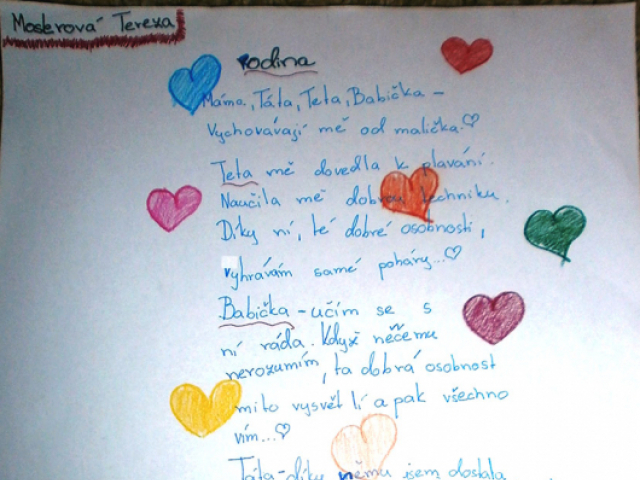 Moserová Tereza
Rodina
Máma, Táta, Teta, Babička -
Vychovávají mě od malička.
Teta mě dovedla k plavání.
Naučila mě dobrou techniku.
Díky ní, té dobré osobnosti,
vyhrávám samé poháry...
Babička - učím se s
ní ráda. Když něčemu
nerozumím, ta dobrá osobnost
mi to vysvětlí a pak všechno
vím...
Táta - díky němu jsem dostala